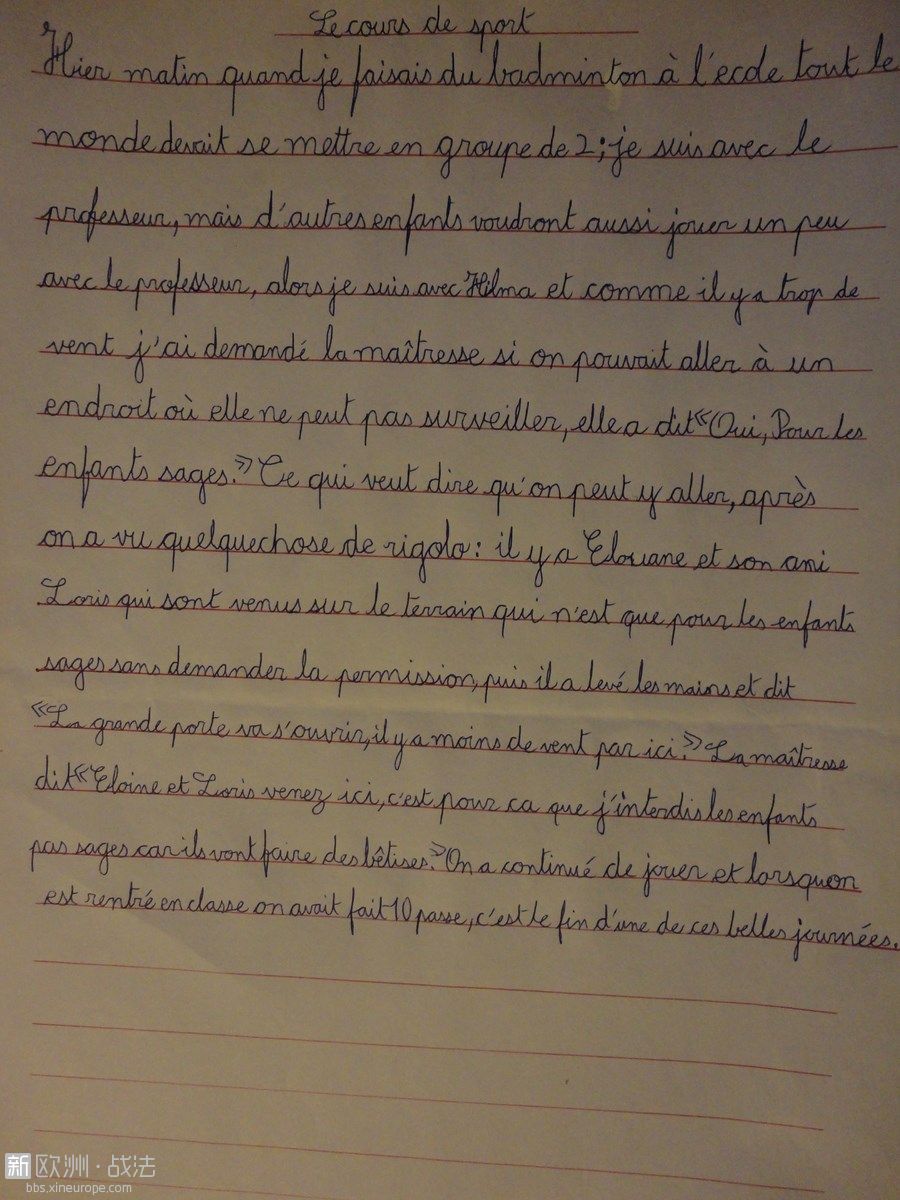 Le cours de sport
Hier matin quand je faisais du badminton à l'école tout le
monde devait se mettre en groupe de 2; je suis avec le
professeur, mais d'autres enfants voudront aussi jouer un peu
avec le professeur, alors je suis avec Hilma et comme il y a trop de
vent j'ai demandé la maîtresse si on pouvait aller à un
endroit où elle ne peut pas surveiller, elle a dit «Oui, Pour les
enfants sages.» Ce qui veut dire qu'on peut y aller, après
on a vu quelquechose de rigolo: il y a Elouane et son ami
Loris qui sont venus sur le terrain qui n'est que pour les enfants
sages sans demander la permission, puis il a levé les mains et dit
«La grande porte va s'ouvrir, il y a moins de vent par ici.» La maîtresse
dit «Eloine et Loris venez ici, c'est pour ca que j'interdis les enfants
pas sages car ils vont faire des bêtises.» On a continué de jouer et lorsquon
est rentré en classe on avait fait 10 passe, c'est le fin d'une de ces belles journées.
新欧洲·战法
bbs.xineurope.com